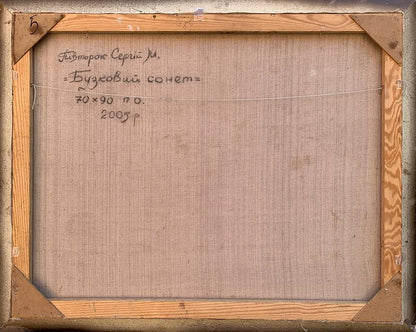 5
Півторак Сергій М.
"Бузковий сонет"
70×90 п о.
2005 р